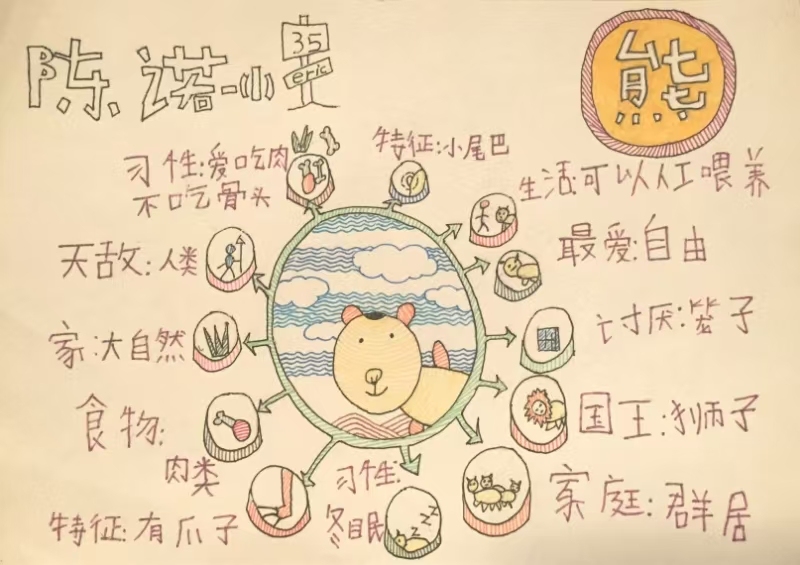 陈诺一小
35
eric
熊
习性:爱吃肉
不吃骨头
特征:小尾巴
生活:可以人工喂养
天敌:人类
最爱:自由
家:大自然
讨厌:笼子
食物:
肉类
国王:狮子
特征:有爪子
习性:
冬眠
zzz
家庭:群居